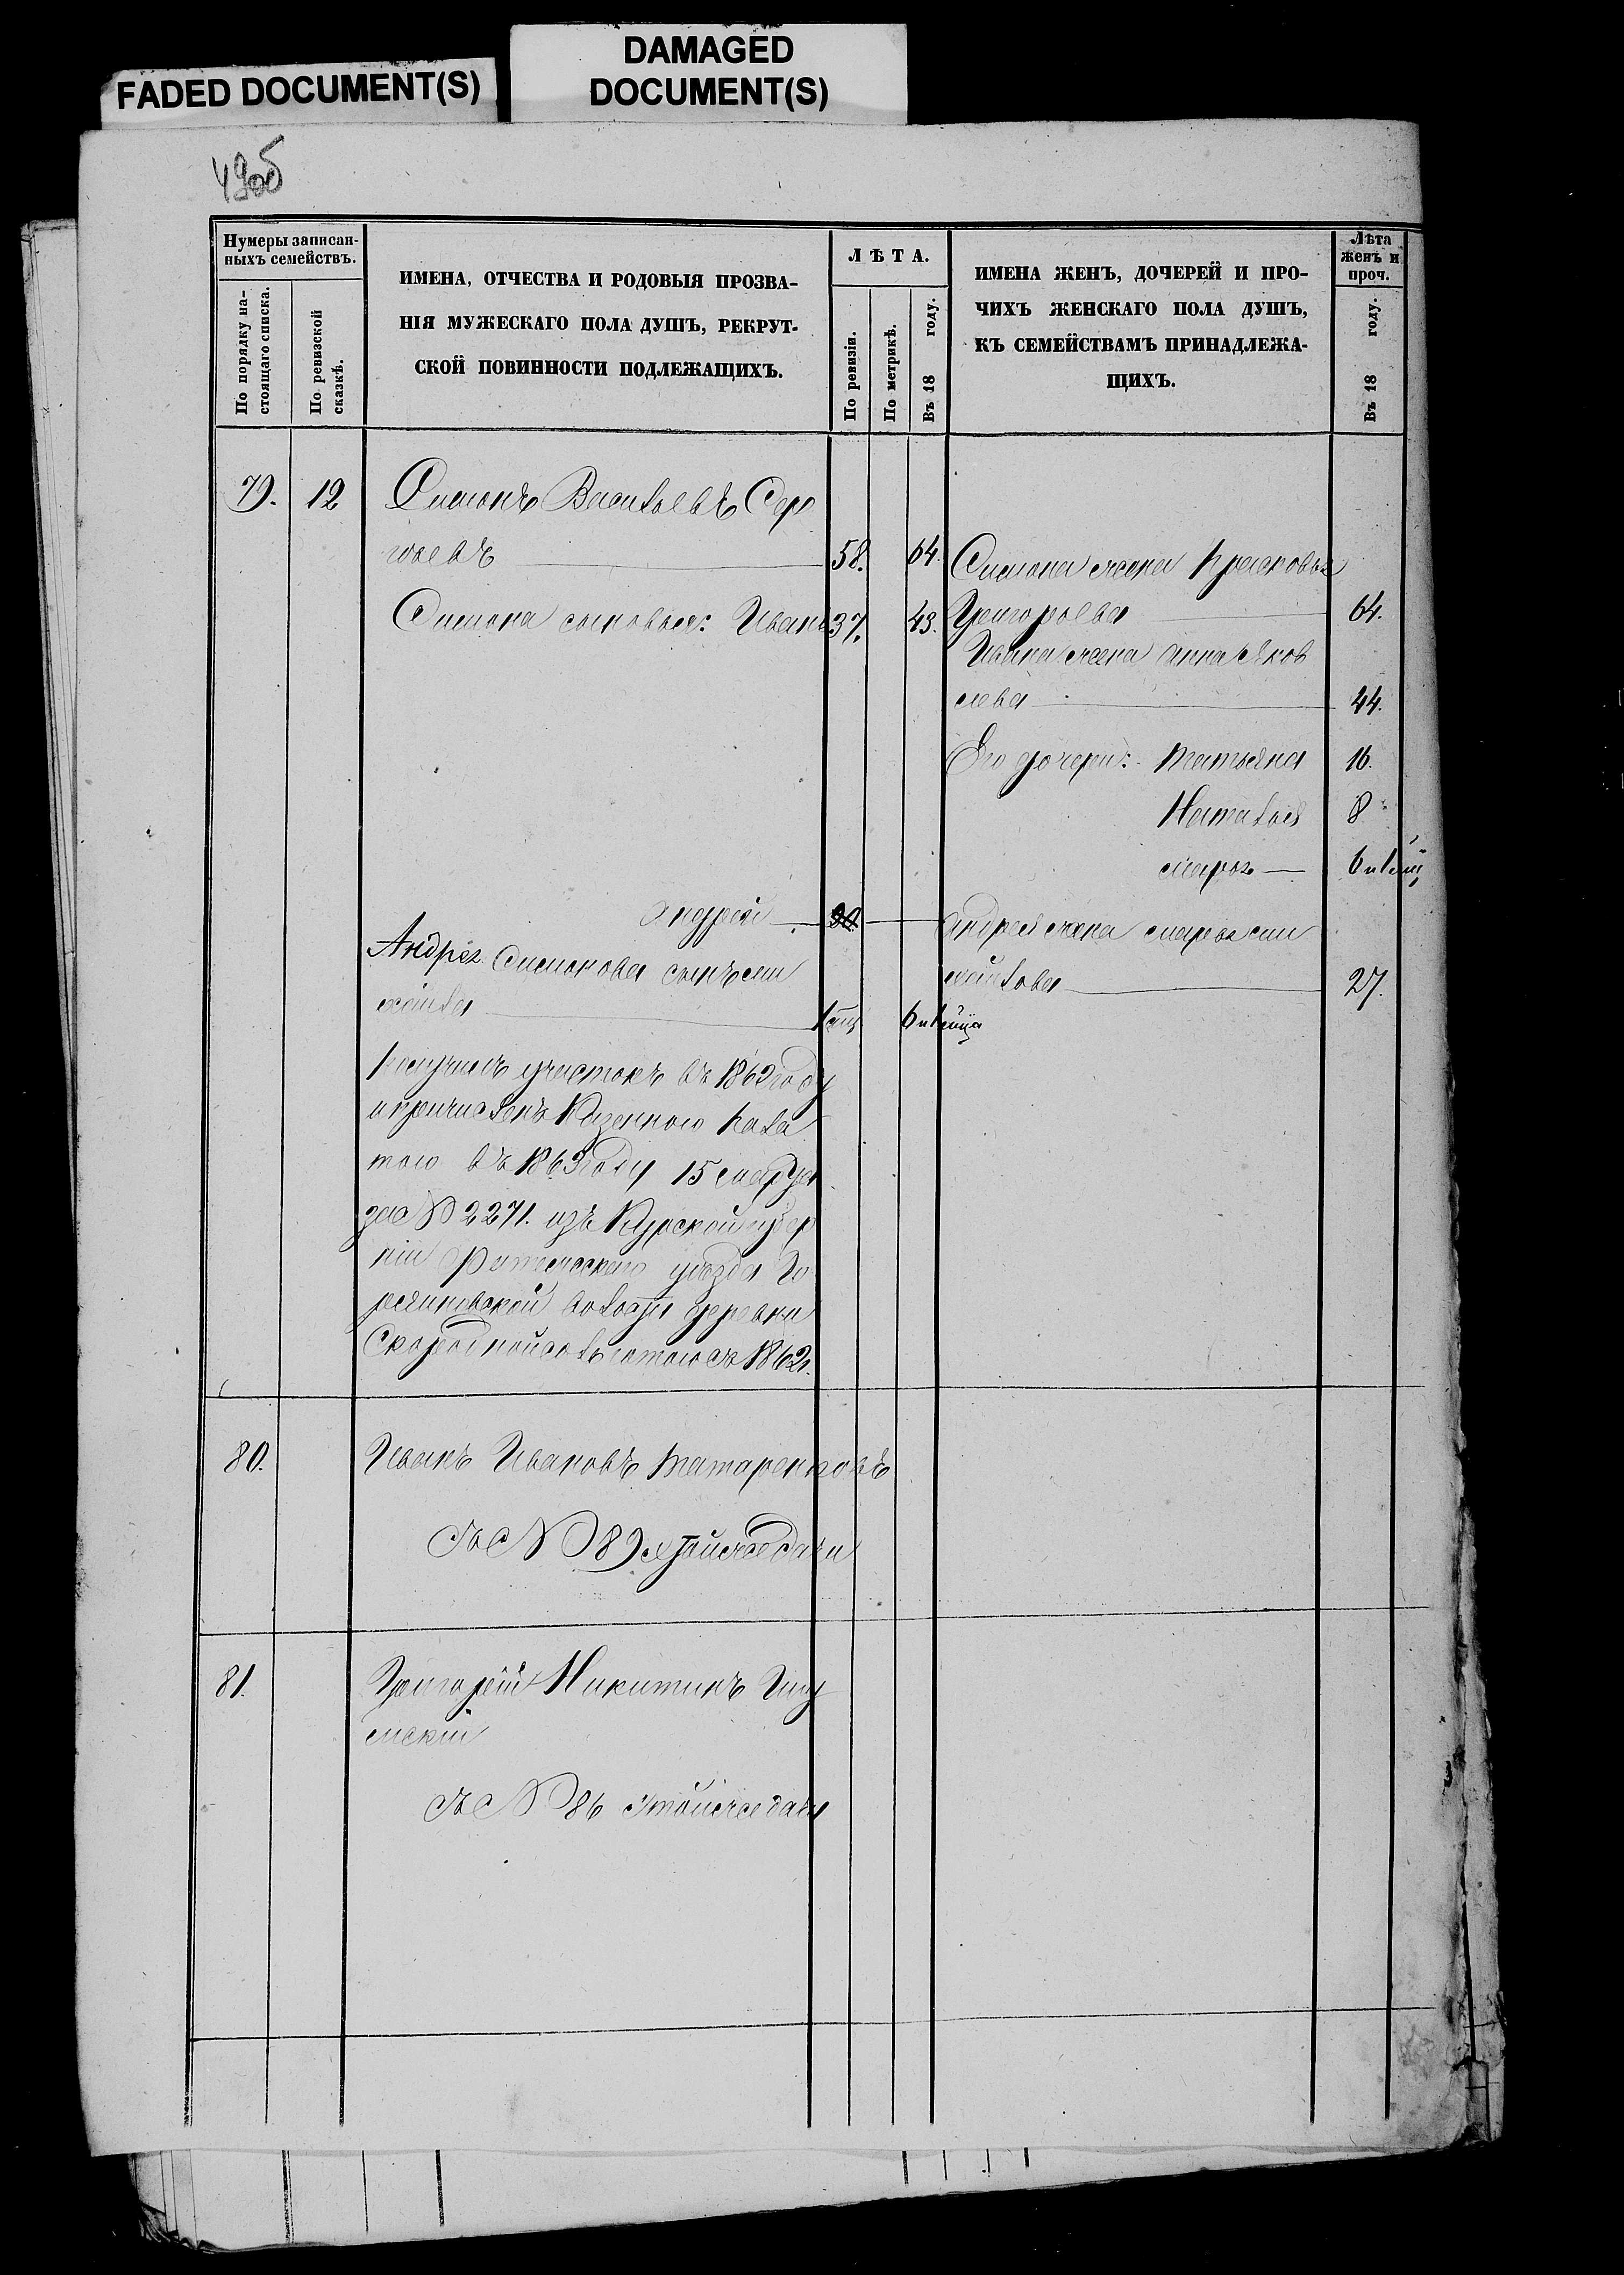 FADED DOCUMENT(S)
DAMAGED
DOCUMENT(S)
49об
Нумеры записан-
ныхъ семействъ.
По порядку на-
стоящаго списка.
По ревизской
сказкѣ.
ИМЕНА, ОТЧЕСТВА И РОДОВЫЯ ПРОЗВА-
НІЯ МУЖЕСКАГО ПОЛА ДУШЪ, РЕКРУТ-
СКОЙ ПОВИННОСТИ ПОДЛЕЖАЩИХЪ.
ЛѢТА.
По ревизіи.
По метрикѣ.
Въ 18 году.
ИМЕНА ЖЕНЪ, ДОЧЕРЕЙ И ПРО-
ЧИХЪ ЖЕНСКАГО ПОЛА ДУШЪ,
КЪ СЕМЕЙСТВАМЪ ПРИНАДЛЕЖА-
ЩИХЪ.
Лѣта
женъ и
проч.
Въ 18 году.
79. 12 Симонъ Васильевъ Сер
гѣевъ 58. 64.
Симона жена Прасковья
Григорьева 64.
Симона сыновья: Иванъ 37. 43.
Ивана жена Анна Яков
лева 44.
Его дочери: Татьяна 16.
Наталья 8
Марья 6 и 1 мѣц
Андрей 20.
Андрея жена Марья Ми
хайлова 27.
Андрея Симонова сынъ Ми
хайла 1 мѣц 6 и 1 мѣца
Получилъ участокъ въ 1862 году
и причисленъ Казенною Пала
тою въ 1863 году 15 Марта
за № 2271. изъ Курской губер
ніи Фатежскаго уѣзда
волости деревни
Скородной со льготою съ 1862г.
80. Иванъ Ивановъ Татаренковъ
съ № 89 этой же дачи
81. Григорій Никитинъ
мскій
съ № 86 этой же дачи